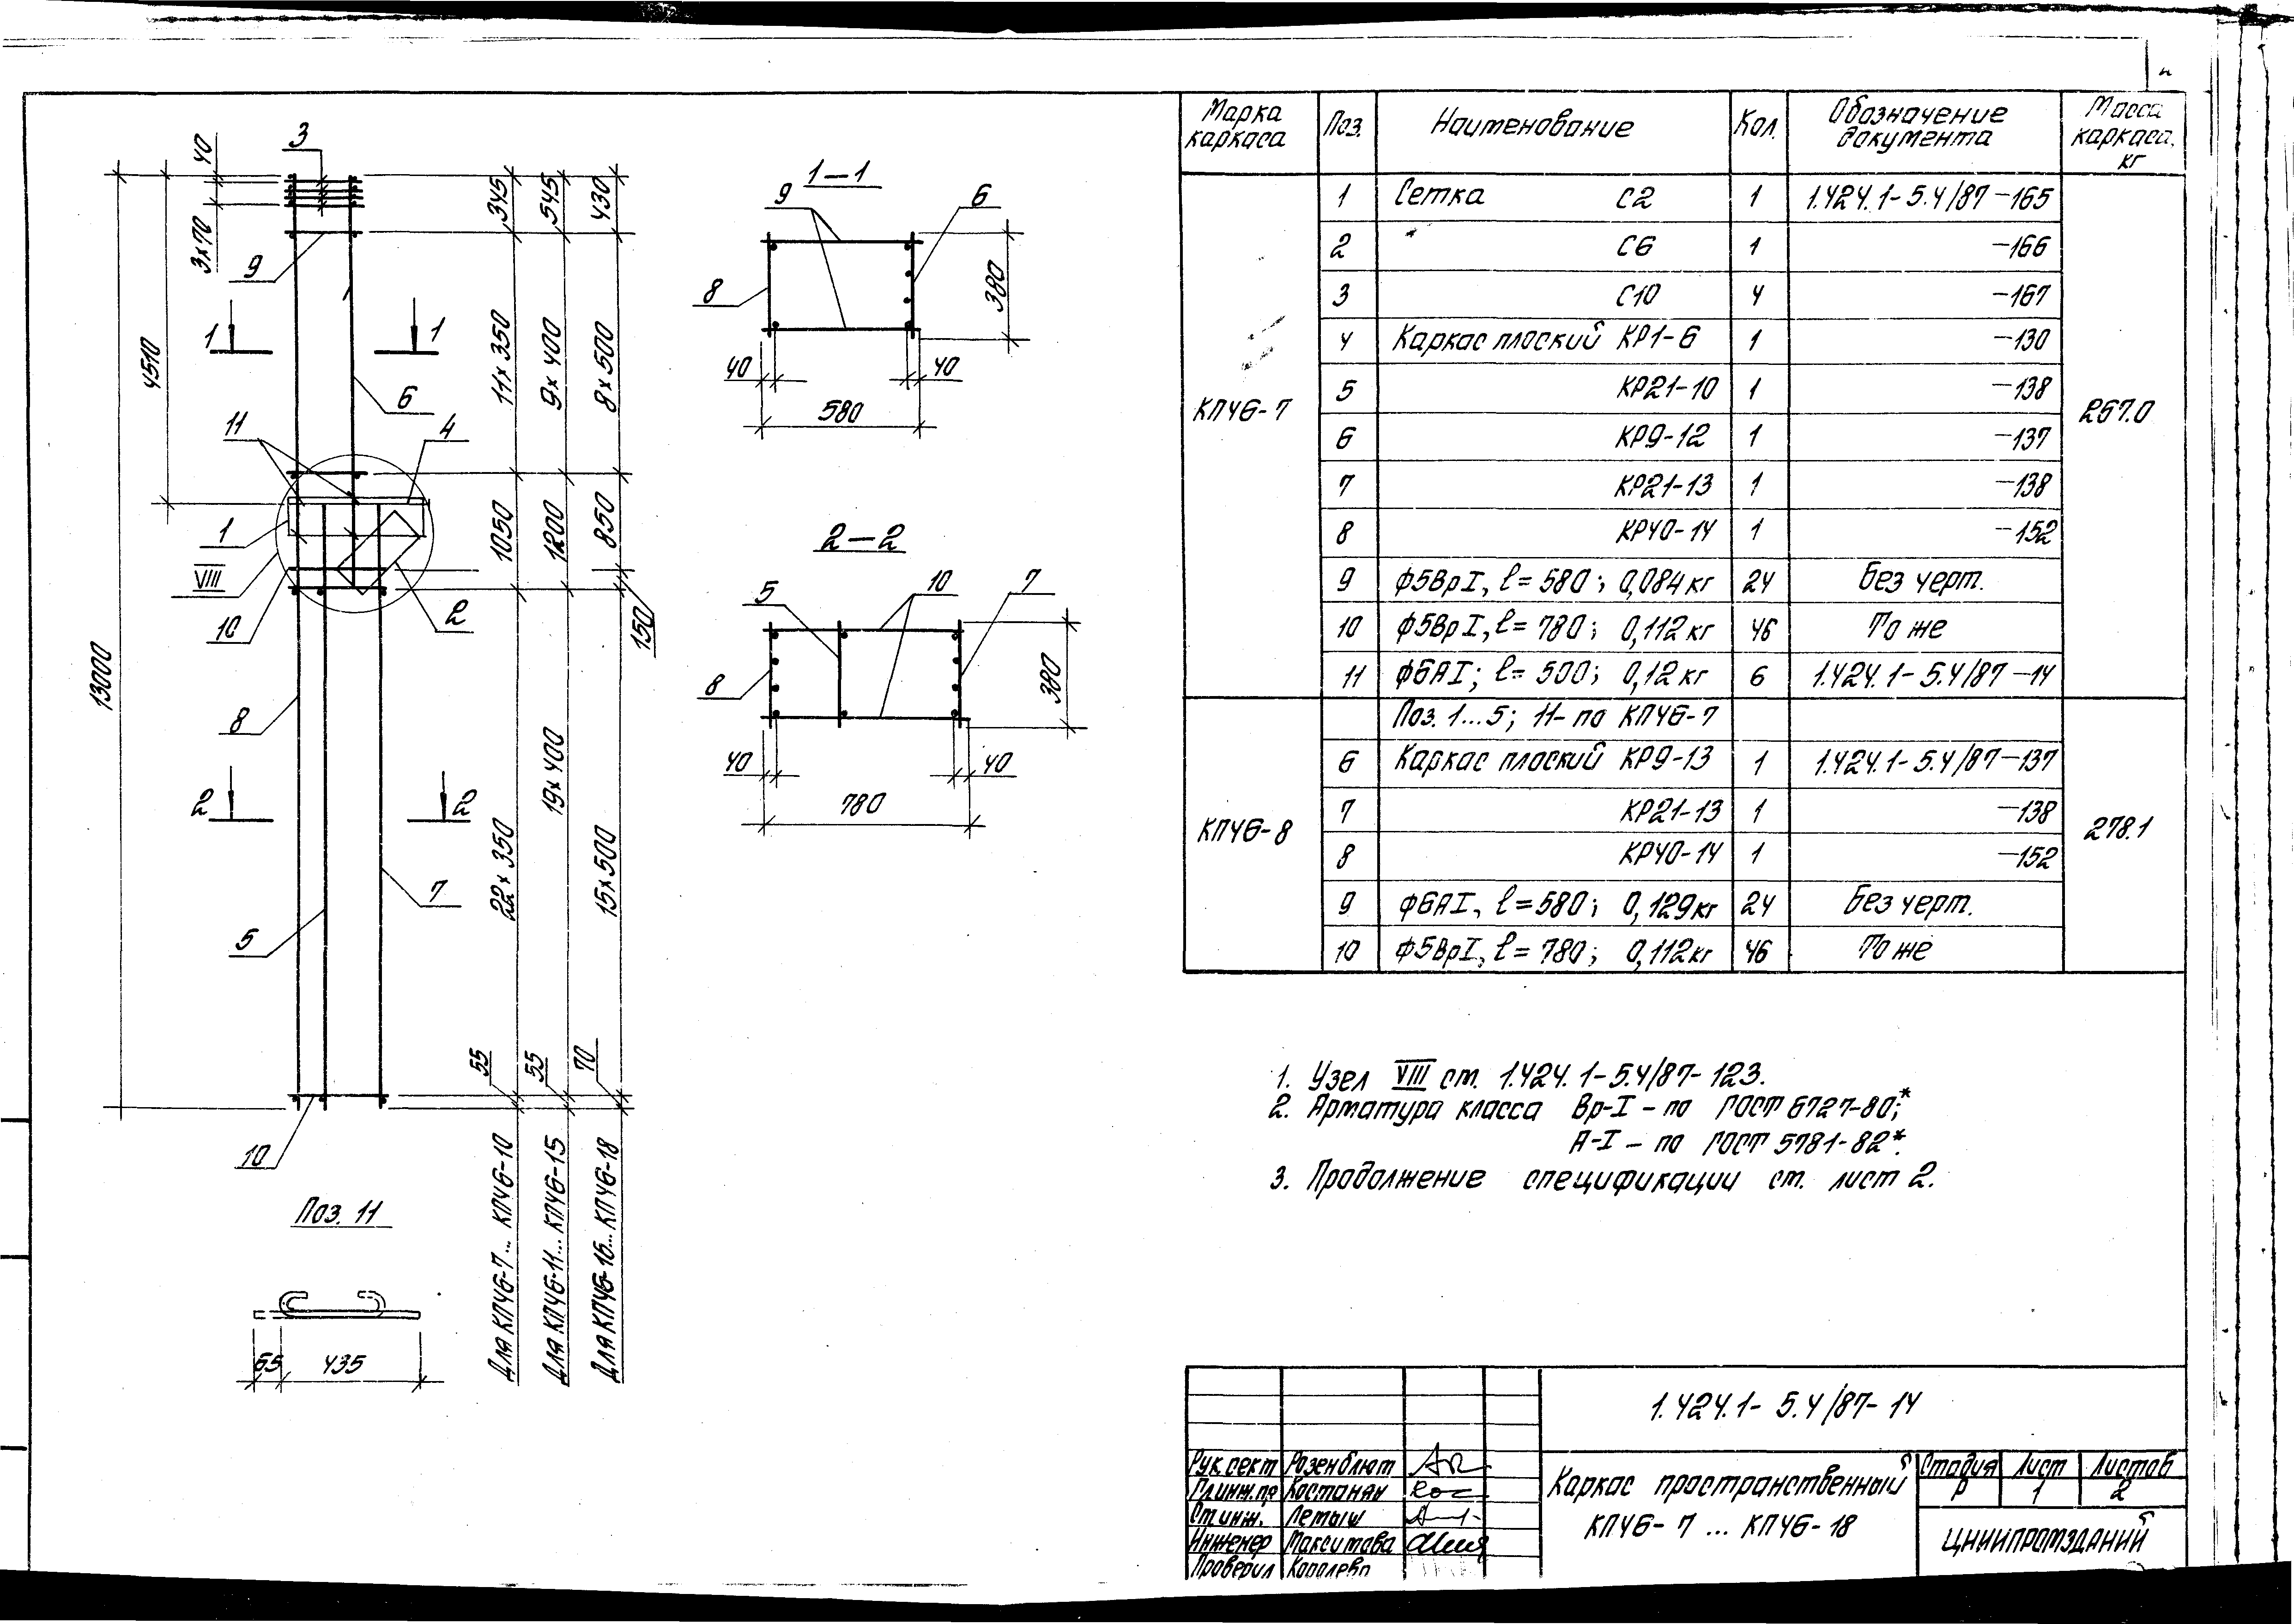 Марка каркаса | Поз. | Наименование | Кол. | Обозначение документа | Масса каркаса, кг
КП46-7 | 1 | Сетка С2 | 1 | 1.424.1-5.4/87-165 | 267.0
2 | С6 | 1 | -166
3 | С10 | 4 | -167
4 | Каркас плоский КР1-6 | 1 | -130
5 | КР21-10 | 1 | -138
6 | КР9-12 | 1 | -137
7 | КР21-13 | 1 | -138
8 | КР40-14 | 1 | -152
9 | ф5ВрI, ℓ=580; 0,084кг | 24 | Без черт.
10 | ф5ВрI, ℓ=780; 0,112кг | 46 | То же
11 | ф6АI; ℓ=500; 0,12кг | 6 | 1.424.1-5.4/87-14
КП46-8 | Поз. 1...5; 11- по КП46-7 | 278.1
6 | Каркас плоский КР9-13 | 1 | 1.424.1-5.4/87-137
7 | КР21-13 | 1 | -138
8 | КР40-14 | 1 | -152
9 | ф6АI, ℓ=580; 0,129кг | 24 | Без черт.
10 | ф5ВрI, ℓ=780; 0,112кг | 46 | То же
3
40
3х70
9
1 1
4510
13000
6
11
4
1
VIII
10
2
8
2 2
7
5
10
345
11х350
1050
22х350
55
Для КП46-7... КП46-10
545
9х400
1200
19х400
55
Для КП46-11... КП46-15
430
8х500
850
150
15х500
70
Для КП46-16... КП46-18
1-1
9
6
8
380
40
40
580
2-2
5
10
7
8
380
40
40
780
Поз. 11
65
435
1. Узел VIII см. 1.424.1-5.4/87-123.
2. Арматура класса Вр-I - по ГОСТ 6727-80;*
А-I - по ГОСТ 5781-82*.
3. Продолжение спецификации см. лист 2.
1.424.1-5.4/87-14
Рук.сект Розенблюм
Гл.инж.пр Костанян
Ст.инж. Летыш
Инженер Максимова
Проверил Королева
Каркас пространственный
КП46-7 ... КП46-18
Стадия Лист Листов
Р 1 2
ЦНИИПРОМЗДАНИЙ